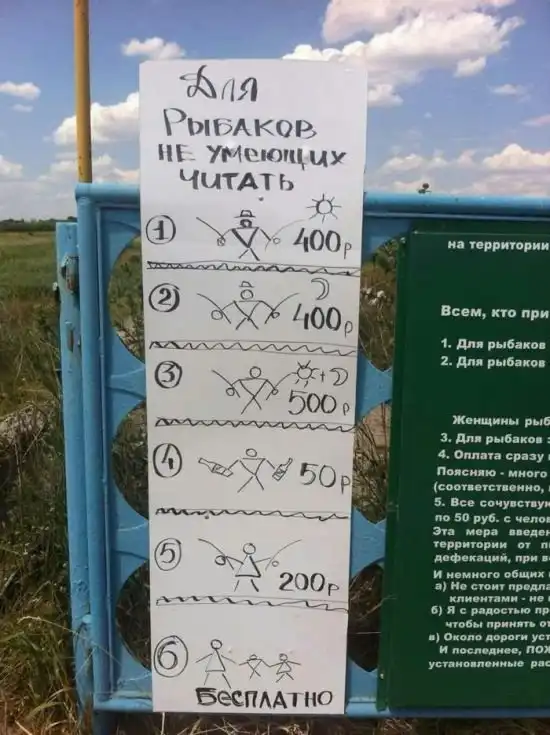 Для
РЫБАКОВ
НЕ УМЕЮЩИХ
ЧИТАТЬ
1 400р
2 400р
3 + 500р
4 50р
5 200р
6
БЕСПЛАТНО
на территории
Всем, кто при
1. Для рыбаков
2. Для рыбаков
Женщины рыб
3. Для рыбаков з
4. Оплата сразу
Поясняю - много
(соответственно,
5. Все сочувствую
по 50 руб. с чело
Эта мера введен
территории от п
дефекаций, при в
И немного общих
а) Не стоит предла
клиентами - не
б) Я с радостью пр
чтобы принять от
в) Около дороги уст
И последнее, ПОЖ
установленные рас